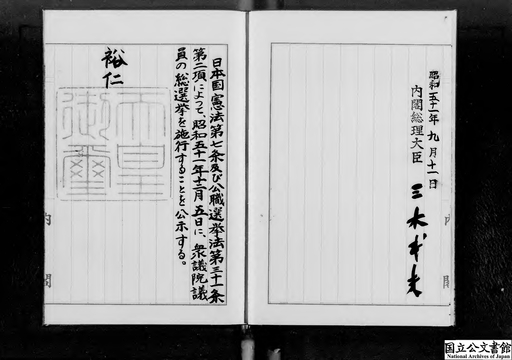 昭和五十一年九月十一日
内閣総理大臣
三木武夫
内閣
日本国憲法第七条及び公職選挙法第三十一条
第二項によって、昭和五十一年十二月五日に、衆議院議
員の総選挙を施行することを公示する。
裕仁
天皇
御璽
内閣
国立公文書館
National Archives of Japan